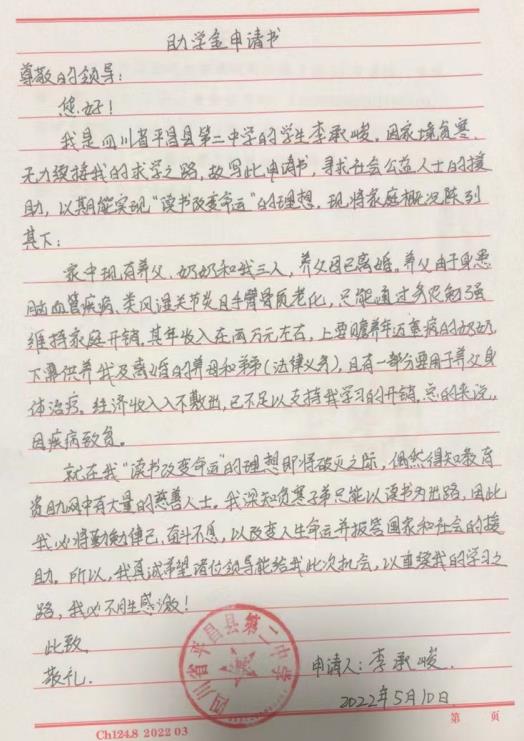 助学金申请书
尊敬的领导：
您好！
我是四川省平昌县第二中学的学生李承峻。因家境贫寒，
无力支持我的求学之路，故写此申请书，寻求社会公益人士的援
助，以期能实现“读书改变命运”的理想。现将家庭概况陈列
其下：
家中现有养父、奶奶和我三人，养父母已离婚。养父由于身患
脑血管疾病、类风湿关节炎且手臂骨质老化，只能通过务农勉强
维持家庭开销。其年收入在两万元左右，上要赡养年迈重病的奶奶，
下需供养我及离婚的养母和弟弟（法律义务），且有一部分要用于养父身
体治疗。经济收入入不敷出，已不足以支持我学习的开销。总的来说，
因疾病致贫。
就在我“读书改变命运”的理想即将破灭之际，偶然得知教育
资助网中有大量的慈善人士。我深知贫寒子弟只能以读书为出路，因此
我必将勤勉律己，奋斗不息，以改变人生命运并报答国家和社会的援
助。所以，我真诚希望诸位领导能给我此次机会，以直续我的学习之
路，我必不胜感激！
此致
敬礼。
四川省平昌县第二中学
申请人：李承峻.
2022年5月10日.
Ch124.8 2022 03
第 页